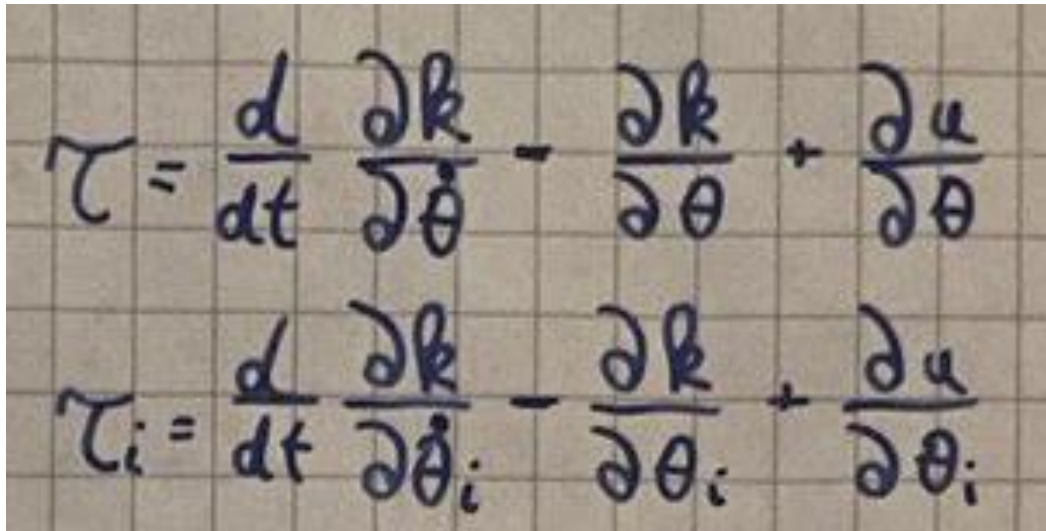 τ = d/dt ∂k/∂θ̇ - ∂k/∂θ + ∂u/∂θ
τᵢ = d/dt ∂k/∂θ̇ᵢ - ∂k/∂θᵢ + ∂u/∂θᵢ